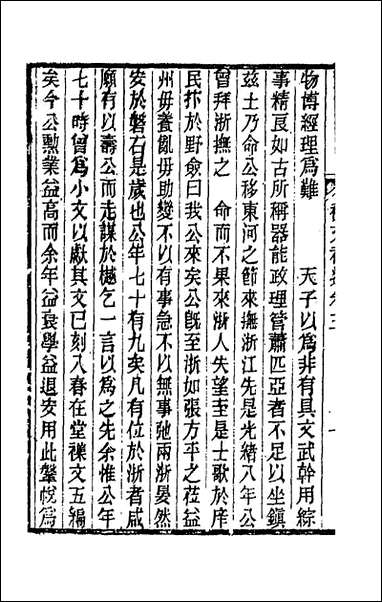 物博經理爲難　　天子以爲非有具文武幹用綜
事精良如古所稱器能政理管蕭匹亞者不足以坐鎮
茲土乃命公移東河之節來撫浙江先是光緒八年公
曾拜浙撫之　命而不果來浙人失望至是士歌於庠
民抃於野僉曰我公來矣公旣至浙如張方平之莅益
州毋養亂毋助變不以有事急不以無事弛兩浙晏然
安於磐石是歲也公年七十有九矣凡有位於浙者咸
願有以壽公而走謀於樾乞一言以爲之先余惟公年
七十時曾爲小文以獻其文已刻入春在堂襍文五編
矣今公勳業益高而余年益衰學益退安用此鞶帨爲